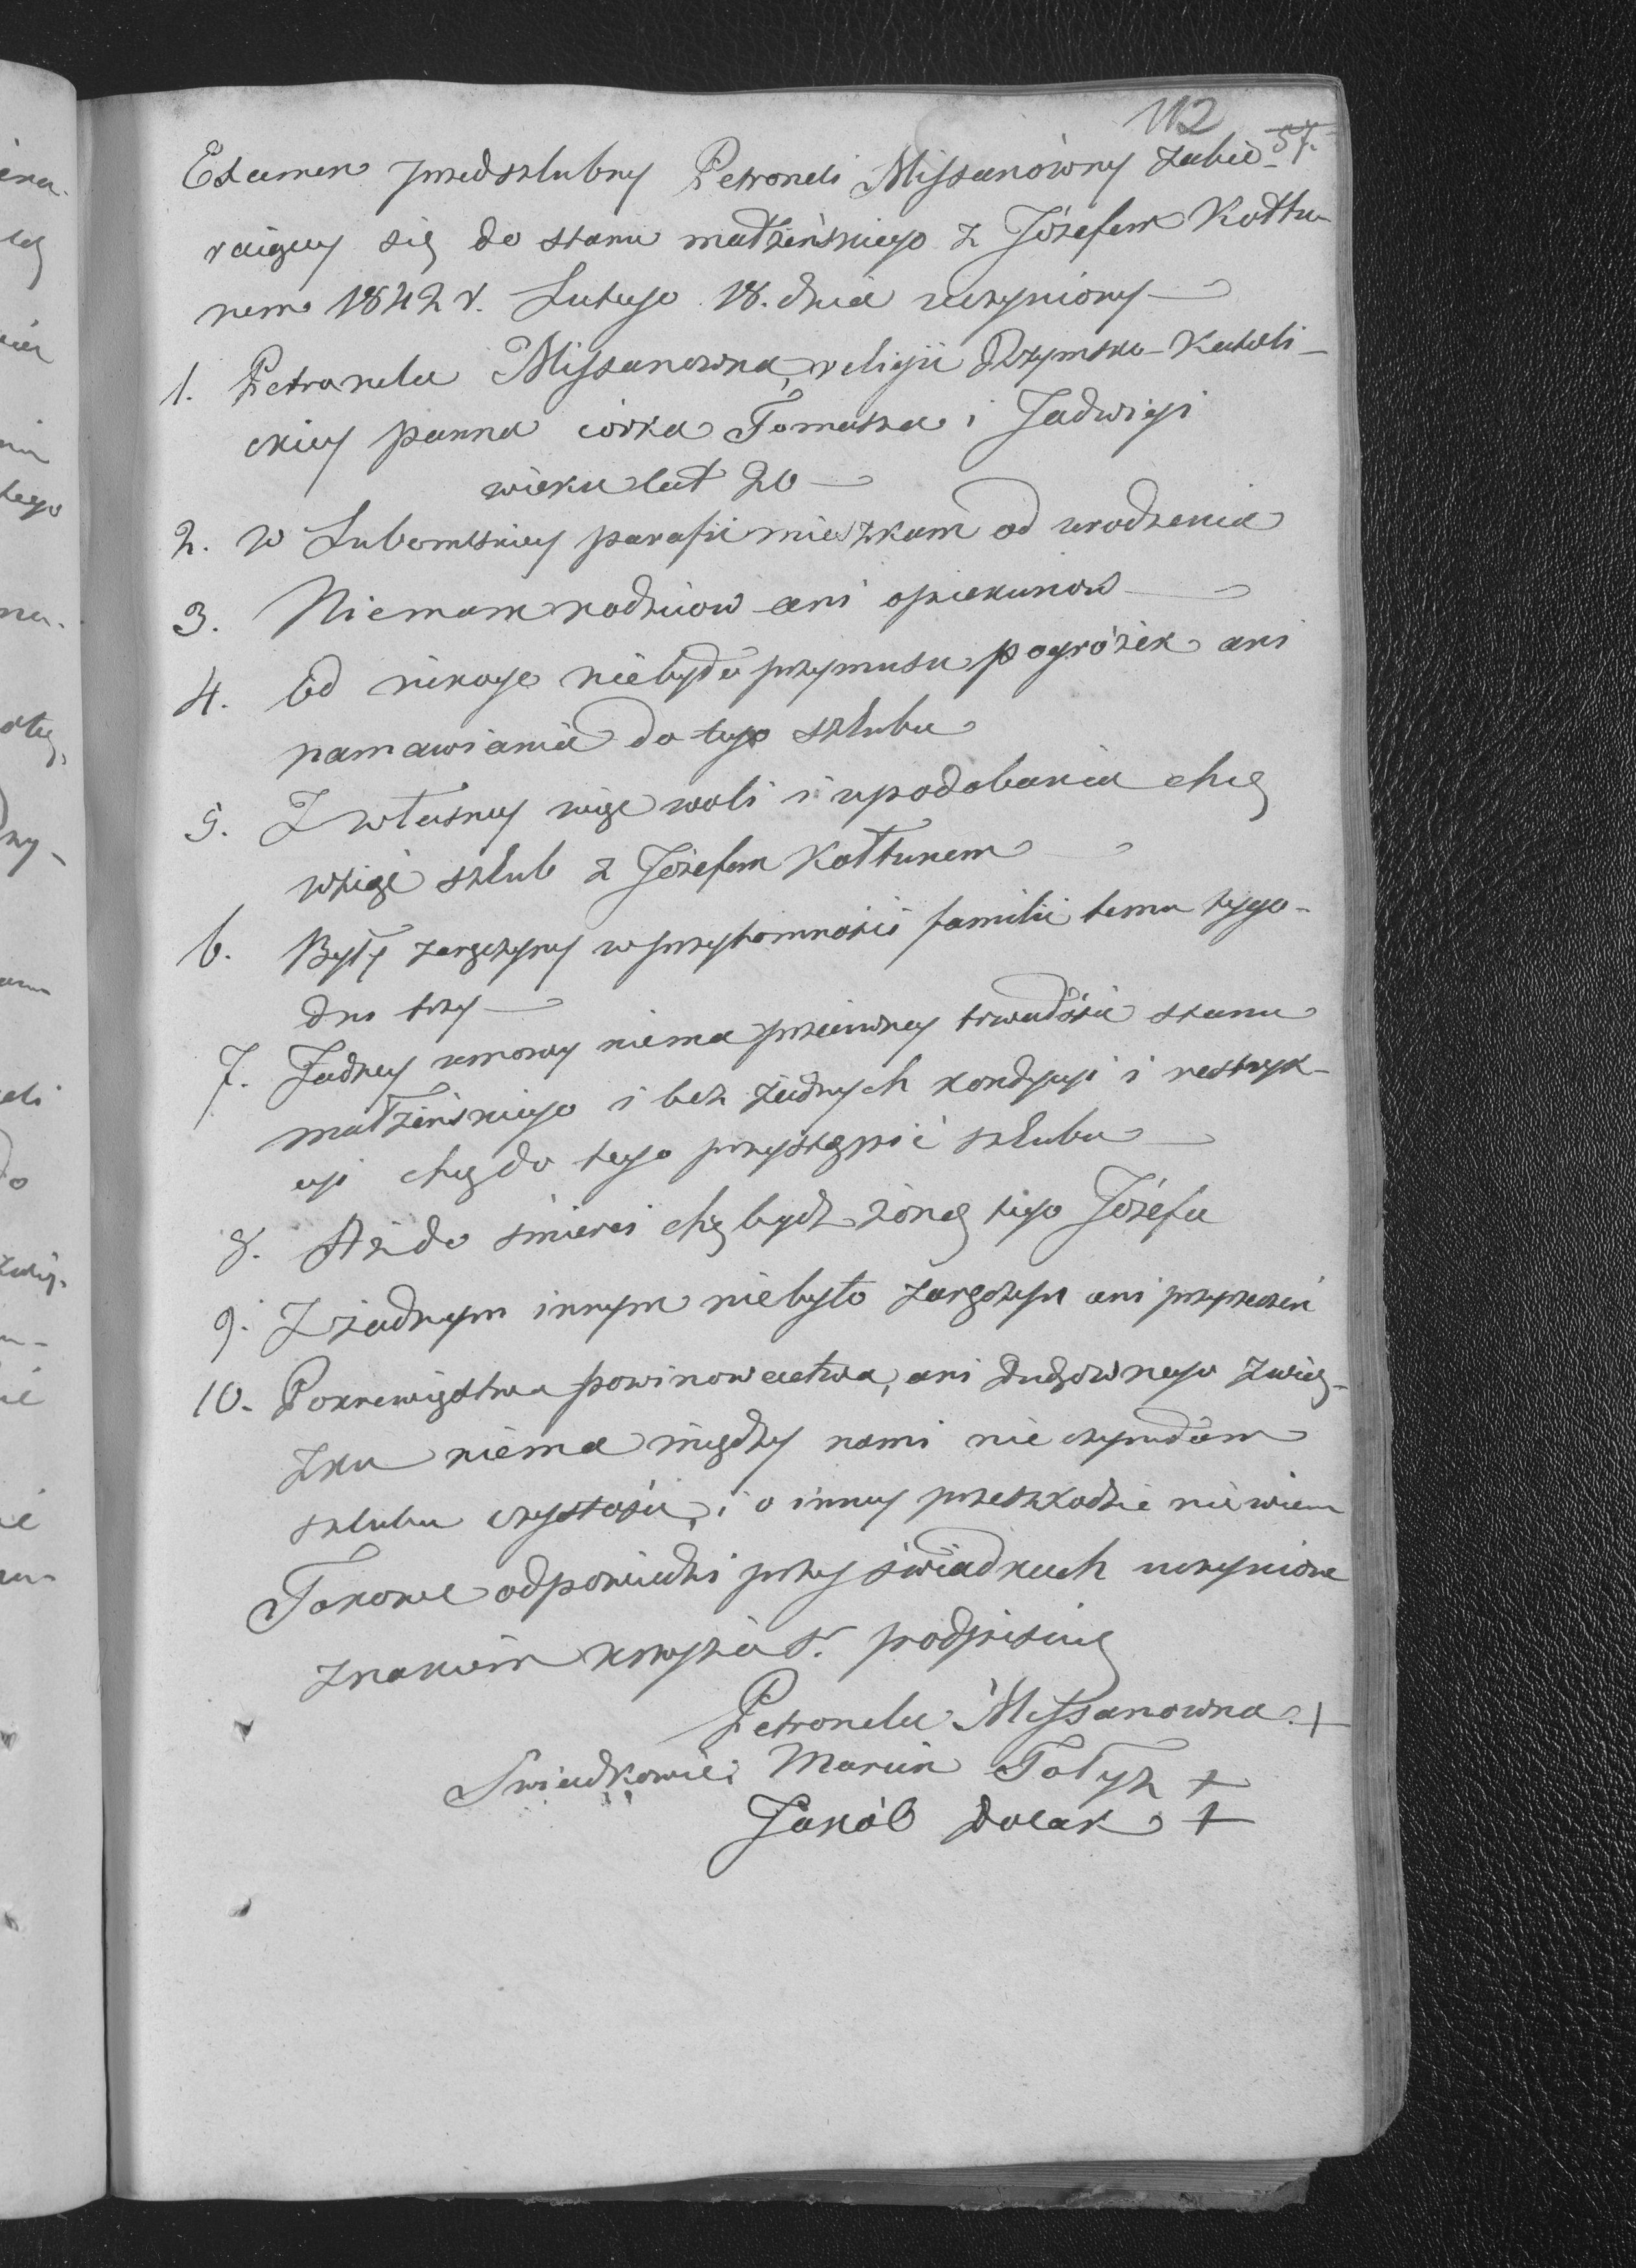 112
57.
Examen przedszlubny Petroneli Missanówny zabie-
raiącey się do stanu małżeńskiego z Józefem Kołtu-
nem 1842 r. Lutego 18. dnia uczyniony
1. Petronela Missanowna, religii Rzymsko-Katoli-
ckiey panna córka Tomasza i Jadwigi
wieku lat 20
2. w Lubomlskiey parafii mieszkam od urodzenia
3. Niemam rodziców ani opiekunów
4. Od nikogo niebyło przymusu pogróżek ani
namawiania do tego szlubu
5. Z własney więc woli i upodobania chcę
wziąć szlub z Józefem Kołtunem
6. Były zaręczyny w przytomności familii temu tygo-
dni trzy
7. Żadney umowy niema przeciwney trwałości stanu
małżeńskiego i bez żadnych kondycyi i restryk-
cyi chcę do tego przystąpić szlubu
8. Aż do śmierci chcę bydź żoną tego Józefa
9. Z żadnym innym niebyło zaręczyn ani przyrzeczeń
10. Pokrewięstwa powinowactwa, ani duchownego związ-
zku niema między nami nie czyniłam
szlubu czystości, i o inney przeszkodzie niewiem
Takowe odpowiedzi przy świadkach uczynione
znakiem krzyża S. podpisuię
Petronela Missanowna. +
Swiadkowie: Marcin Tołysz +
Jakób Dolak +